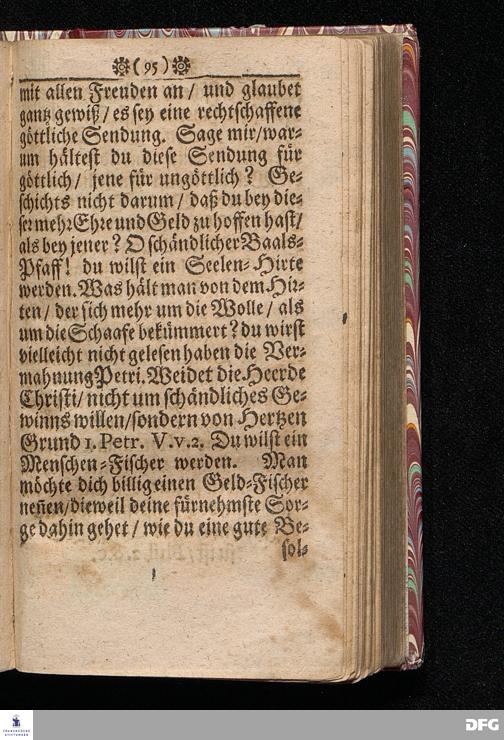 (95)
mit allen Freuden an / und glaubet
gantz gewiß / es sey eine rechtschaffene
göttliche Sendung. Sage mir/war-
um hältest du diese Sendung für
göttlich/ jene für ungöttlich? Ge-
schichts nicht darum/ daß du bey die-
ser mehr Ehre und Geld zu hoffen hast/
als bey jener? O schändlicher Baals-
Pfaff! du wilst ein Seelen-Hirte
werden. Was hält man von dem Hir-
ten/ der sich mehr um die Wolle/ als
um die Schaafe bekümmert? du wirst
vielleicht nicht gelesen haben die Ver-
mahnung Petri. Weidet die Heerde
Christi/ nicht um schändliches Ge-
winns willen/sondern von Hertzen
Grund 1. Petr. V. v. 2. Du wilst ein
Menschen-Fischer werden. Man
möchte dich billig einen Geld-Fischer
neñen/dieweil deine fürnehmste Sor-
ge dahin gehet / wie du eine gute Be-
sol-
FRANCKESCHE
STIFTUNGEN
DFG